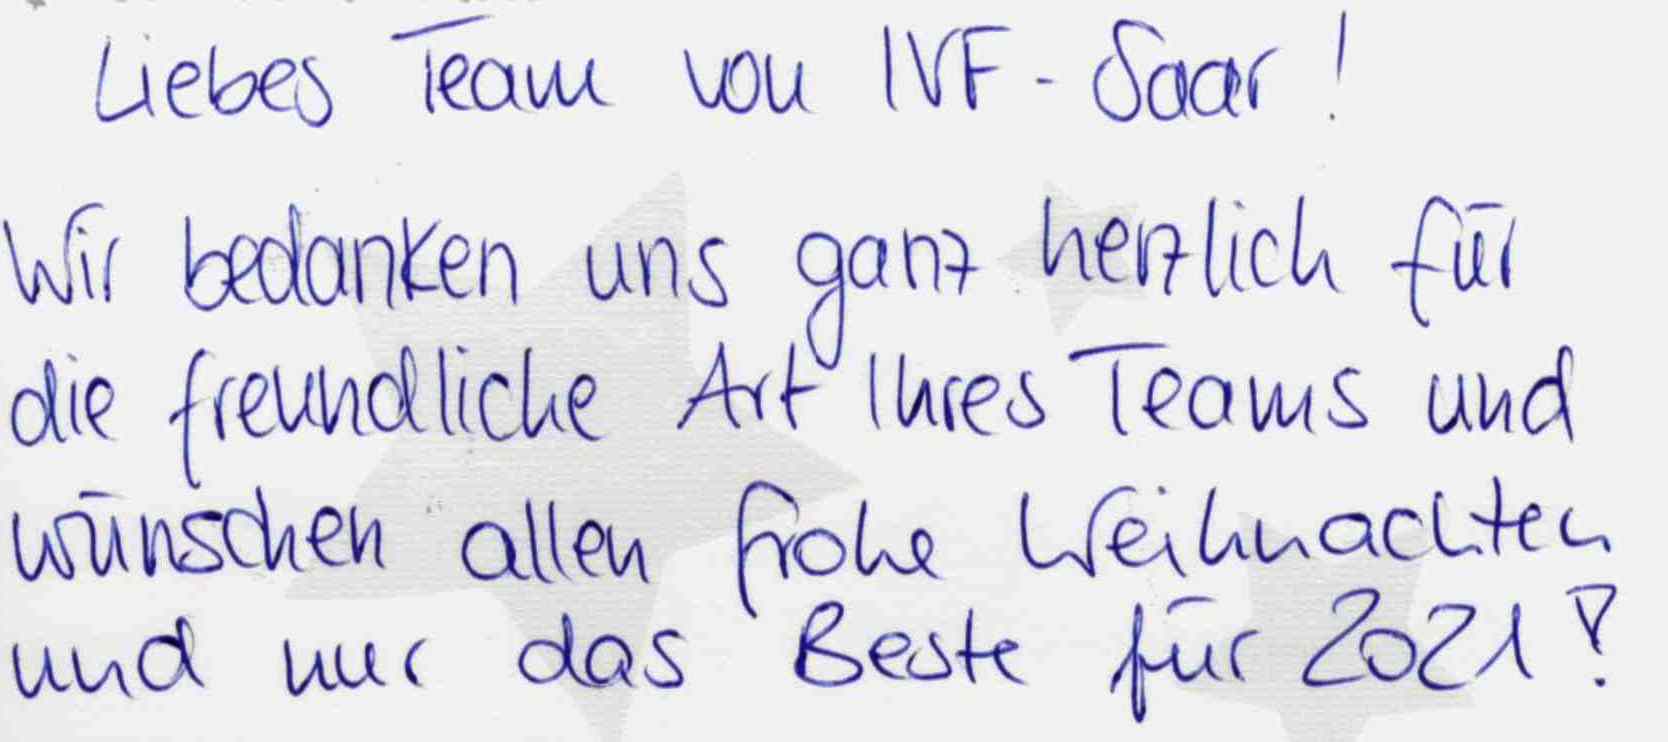 Liebes Team von IVF-Saar!
Wir bedanken uns ganz herzlich für
die freundliche Art Ihres Teams und
wünschen allen frohe Weihnachten
und nur das Beste für 2021!